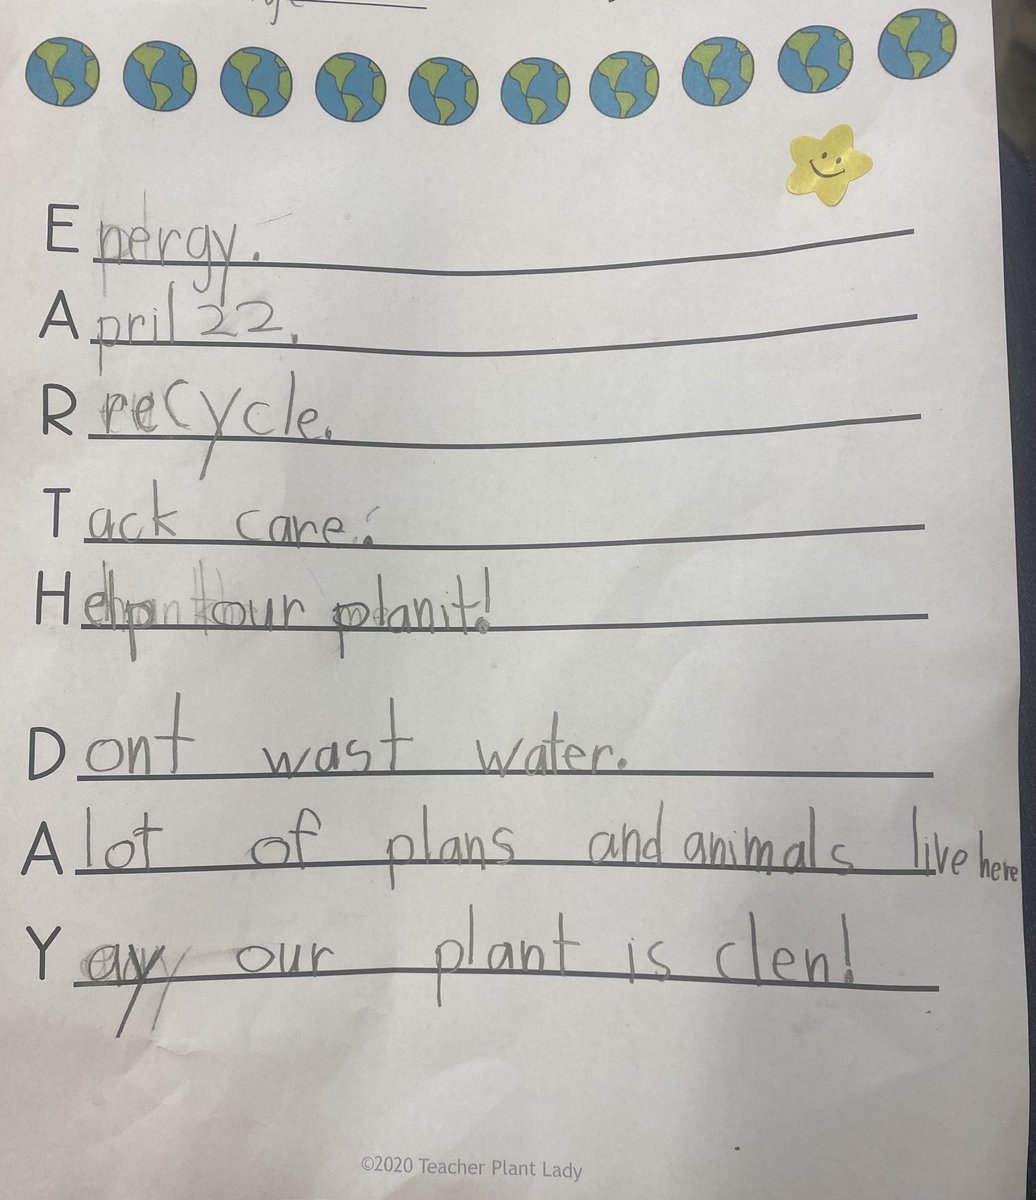 Energy.
April 22.
Rrecycle.
Tack care.
Help our planit!
Dont wast water.
A lot of plans and animals live here
Yay our plant is clen!
©2020 Teacher Plant Lady